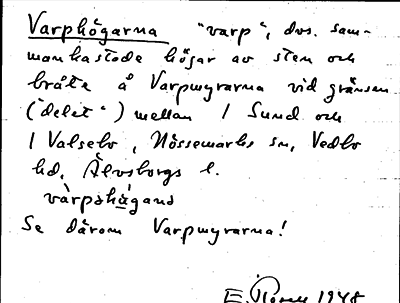 Varphögarna "varp", dvs. sam-
mankastade högar av sten och
bråte å Varpmyrarna vid gränsen
("delet") mellan 1 Sund och
1 Valsebo, Nössemarks sn, Vedbo
hd, Älvsborgs l.
vàrpshågana
Se därom Varpmyrarna!
E. 1948